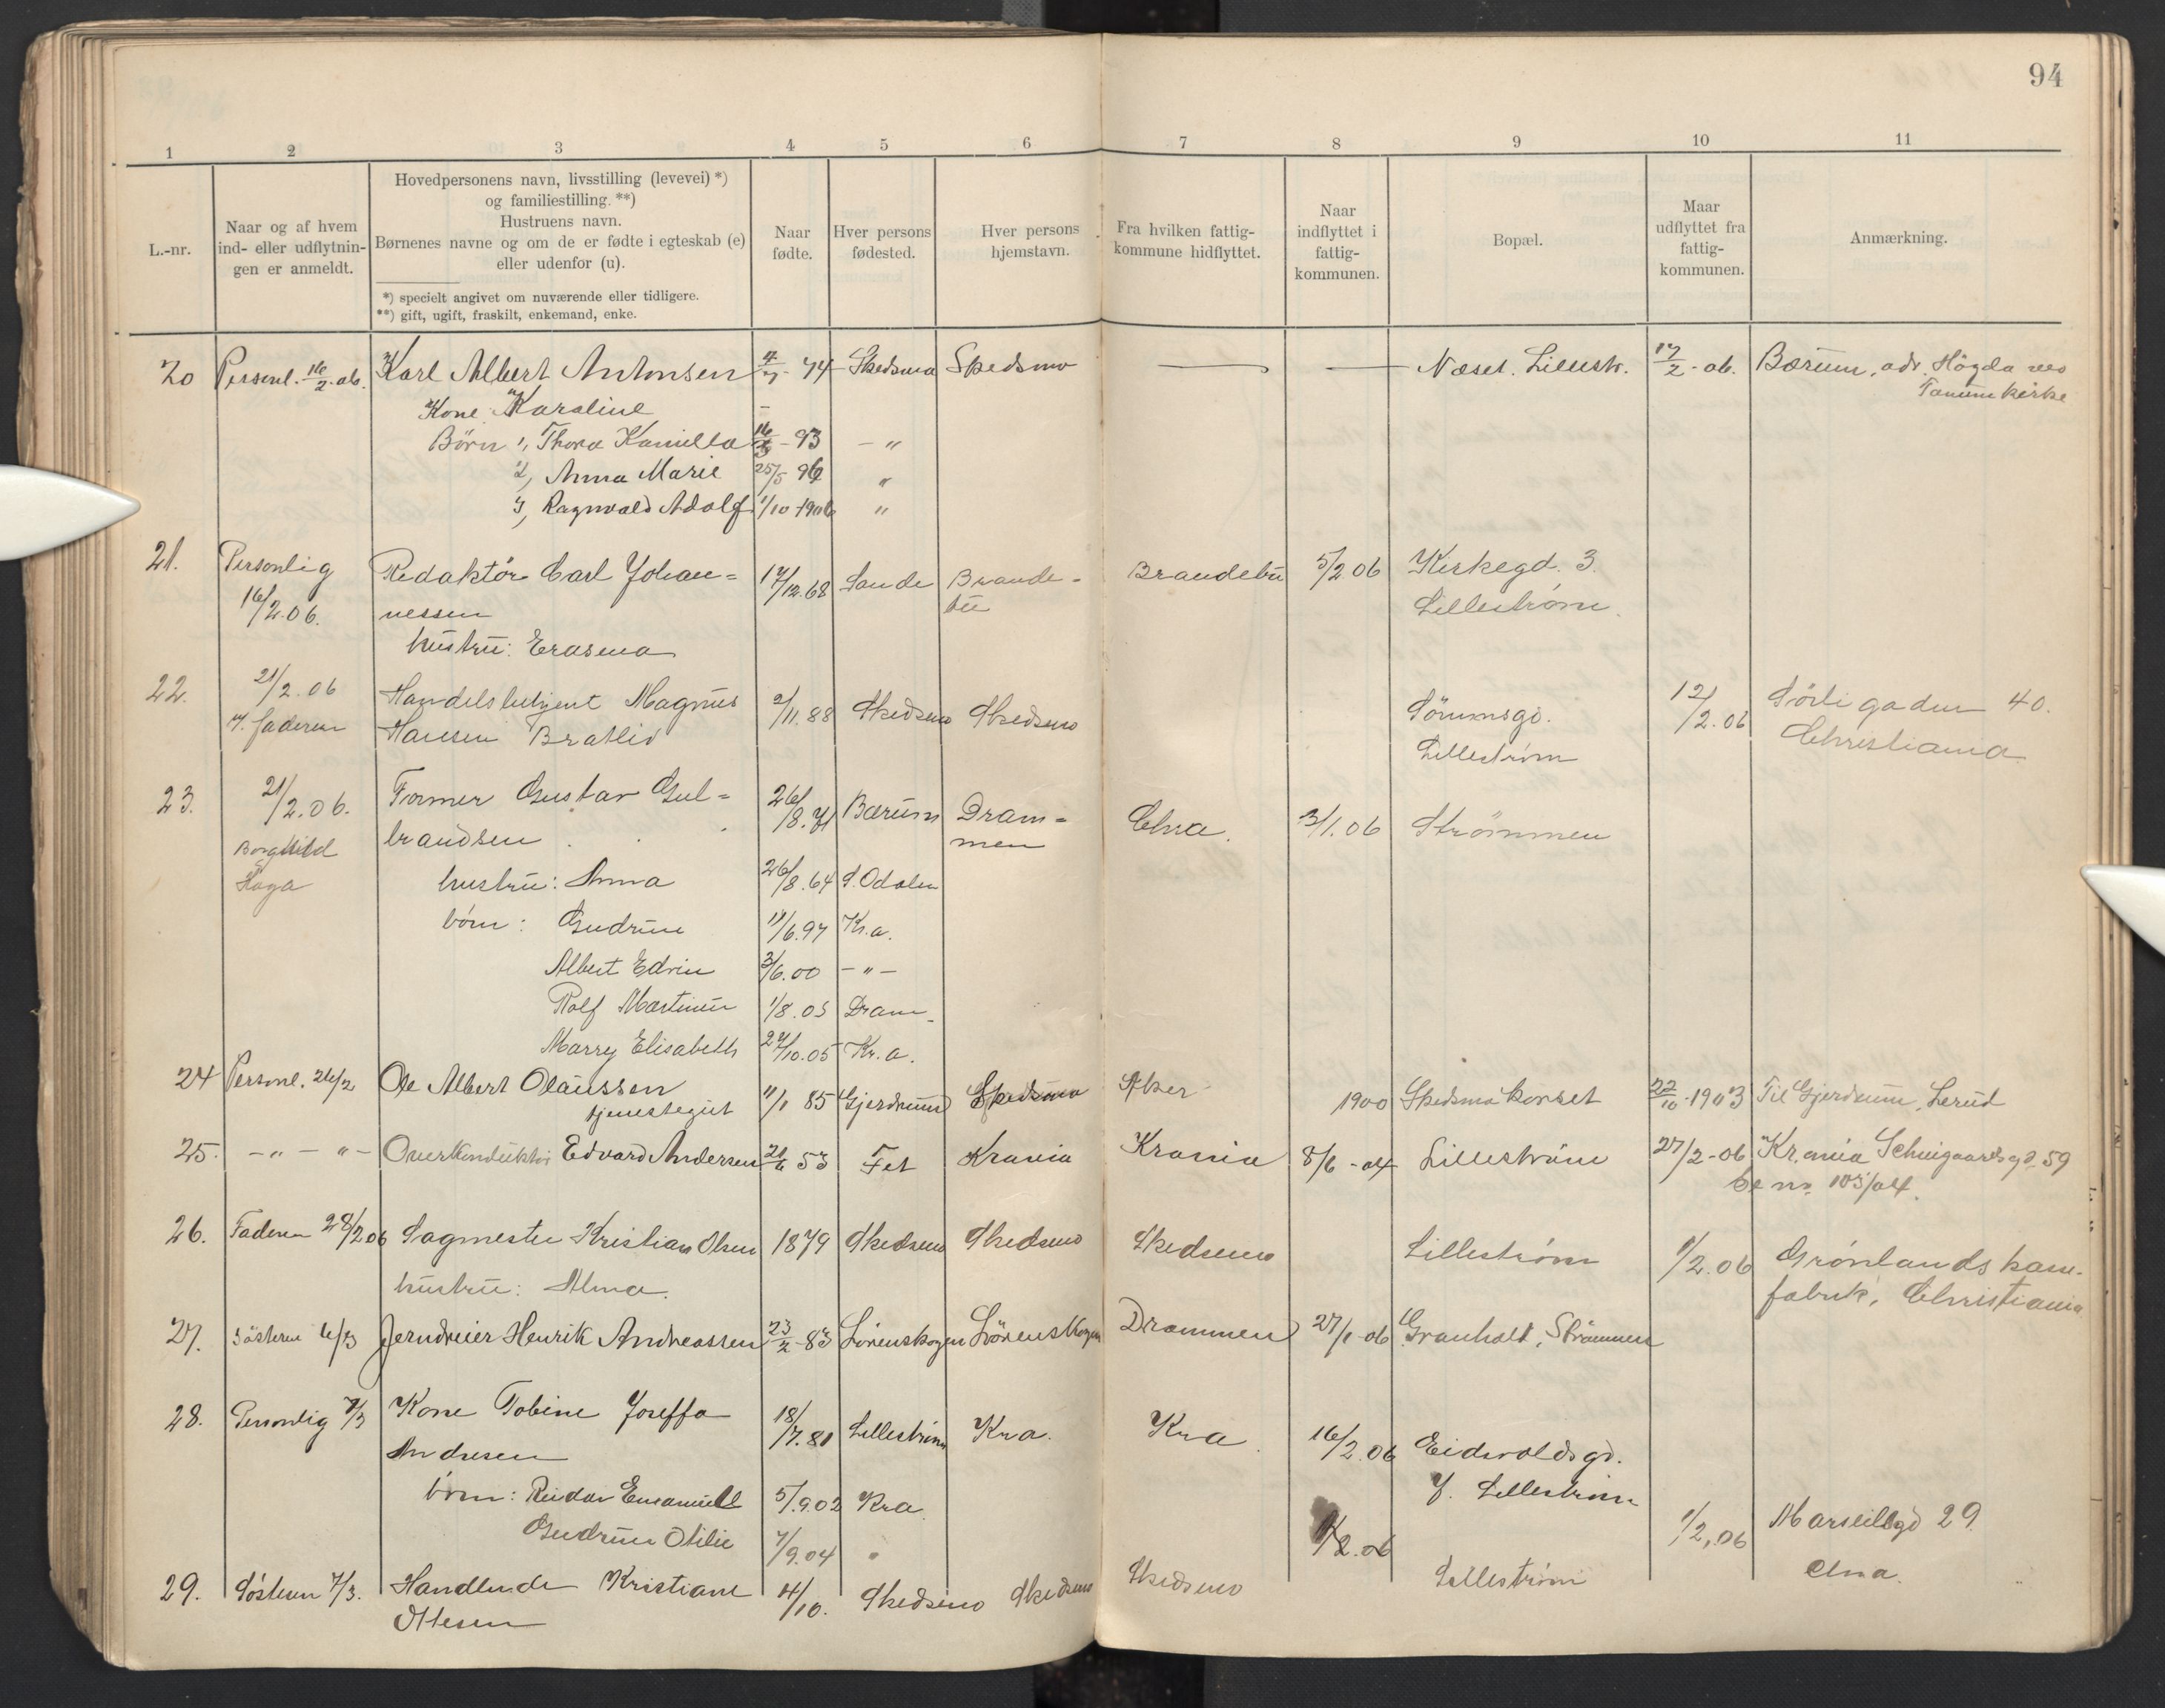 94
1 2 3 4 5 6 7 8 9 10 11
L.-nr.
Naar og af hvem
ind- eller udflytnin-
gen er anmeldt.
Hovedpersonens navn, livsstilling (levevei) *)
og familiestilling. **)
Hustruens navn.
Børnenes navne og om de er fødte i egteskab (e)
eller udenfor (u).
*) specielt angivet om nuværende eller tidligere.
**) gift, ugift, fraskilt, enkemand, enke.
Naar
fødte.
Hver persons
fødested.
Hver persons
hjemstavn.
Fra hvilken fattig-
kommune hidflyttet.
Naar
indflyttet i
fattig-
kommunen.
Bopæl.
Maar
udflyttet fra
fattig-
kommunen.
Anmærkning.
20 Personl. 16/2-06. Karl Albert Antonsen 4/7-74 Skedsmo Skedsmo — — Næset. Lillestr. 17/2-06. Bærum, adr. Högda ved
Tanum kirke
Kone Karoline –
Børn 1, Thora Kamilla 16/3-93 – "
2, Anna Marie 25/5 96 "
3, Ragnvald Adolf 1/10 1906 "
21. Personlig Redaktör Carl Johan= 17/12.68 Sande Brande- Brandebu 5/2 06 Kirkegd. 3.
16/2.06. nessen bu Lilleström.
hustru: Erasma
22. 21/2.06 Handelsbetjent Magnus 2/11.88 Skedsmo Skedsmo Sörumsgd. 12/2.06 Sörligaden 40.
v. faderen Hansen Bratlid Lilleström Christiania
23. 21/2.06. Former Gustav Gul= 26/8.71 Bærum Dram= Chra. 3/1.06 Strömmen
Borghild brandsen men
Haga hustru: Anna 26/8.64 S. Odalen
börn: Gudrun 11/6.97 Kr.a.
Albert Edvin 3/6.00 – " –
Rolf Martinius 1/8.03 Dram.
Marry Elisabeth 27/10.05 Kr.a.
24 Personl. 26/2 Ole Albert Olaussen 11/1 85 Gjerdrum Skedsmo Aker 1900 Skedsmokorset 22/10-1903 Til Gjerdrum, Lerud
tjenestegut
25. – " – " – Overkonduktör Edvard Andersen 21/6 53 Fet Krania Krania 8/6-04 Lilleström 27/2-06 Kr.ania Schweigaardsgd. 59
se nr. 105/04.
26. Faderen 28/2 06 Sagmester Kristian Olsen 1879 Skedsmo Skedsmo Skedsmo Lilleström 1/2.06 Grönlands kam-
hustru: Alma. fabrik, Christiania
27. Søsteren 6/3 Jerndreier Henrik Andreassen 23/2-83 Lörenskogen Lörenskogen Drammen 27/1-06 Granholt, Strömmen
28. Personlig 7/3 Kone Tobine Joseffa 18/7.81 Lilleström Kra. Kra. 16/2.06 Eidsvoldsgd.
Andresen 7. Lilleström
börn: Reidar Emanuell 5/9.02 Kra.
Gudrun Otilie 7/9.04 "
1/2.06 1/2.06 Marseillgd 29.
29. Søsteren 7/3. Handlende Kristiane 4/10. Skedsmo Skedsmo Skedsmo Lilleström Chra.
Ottesen